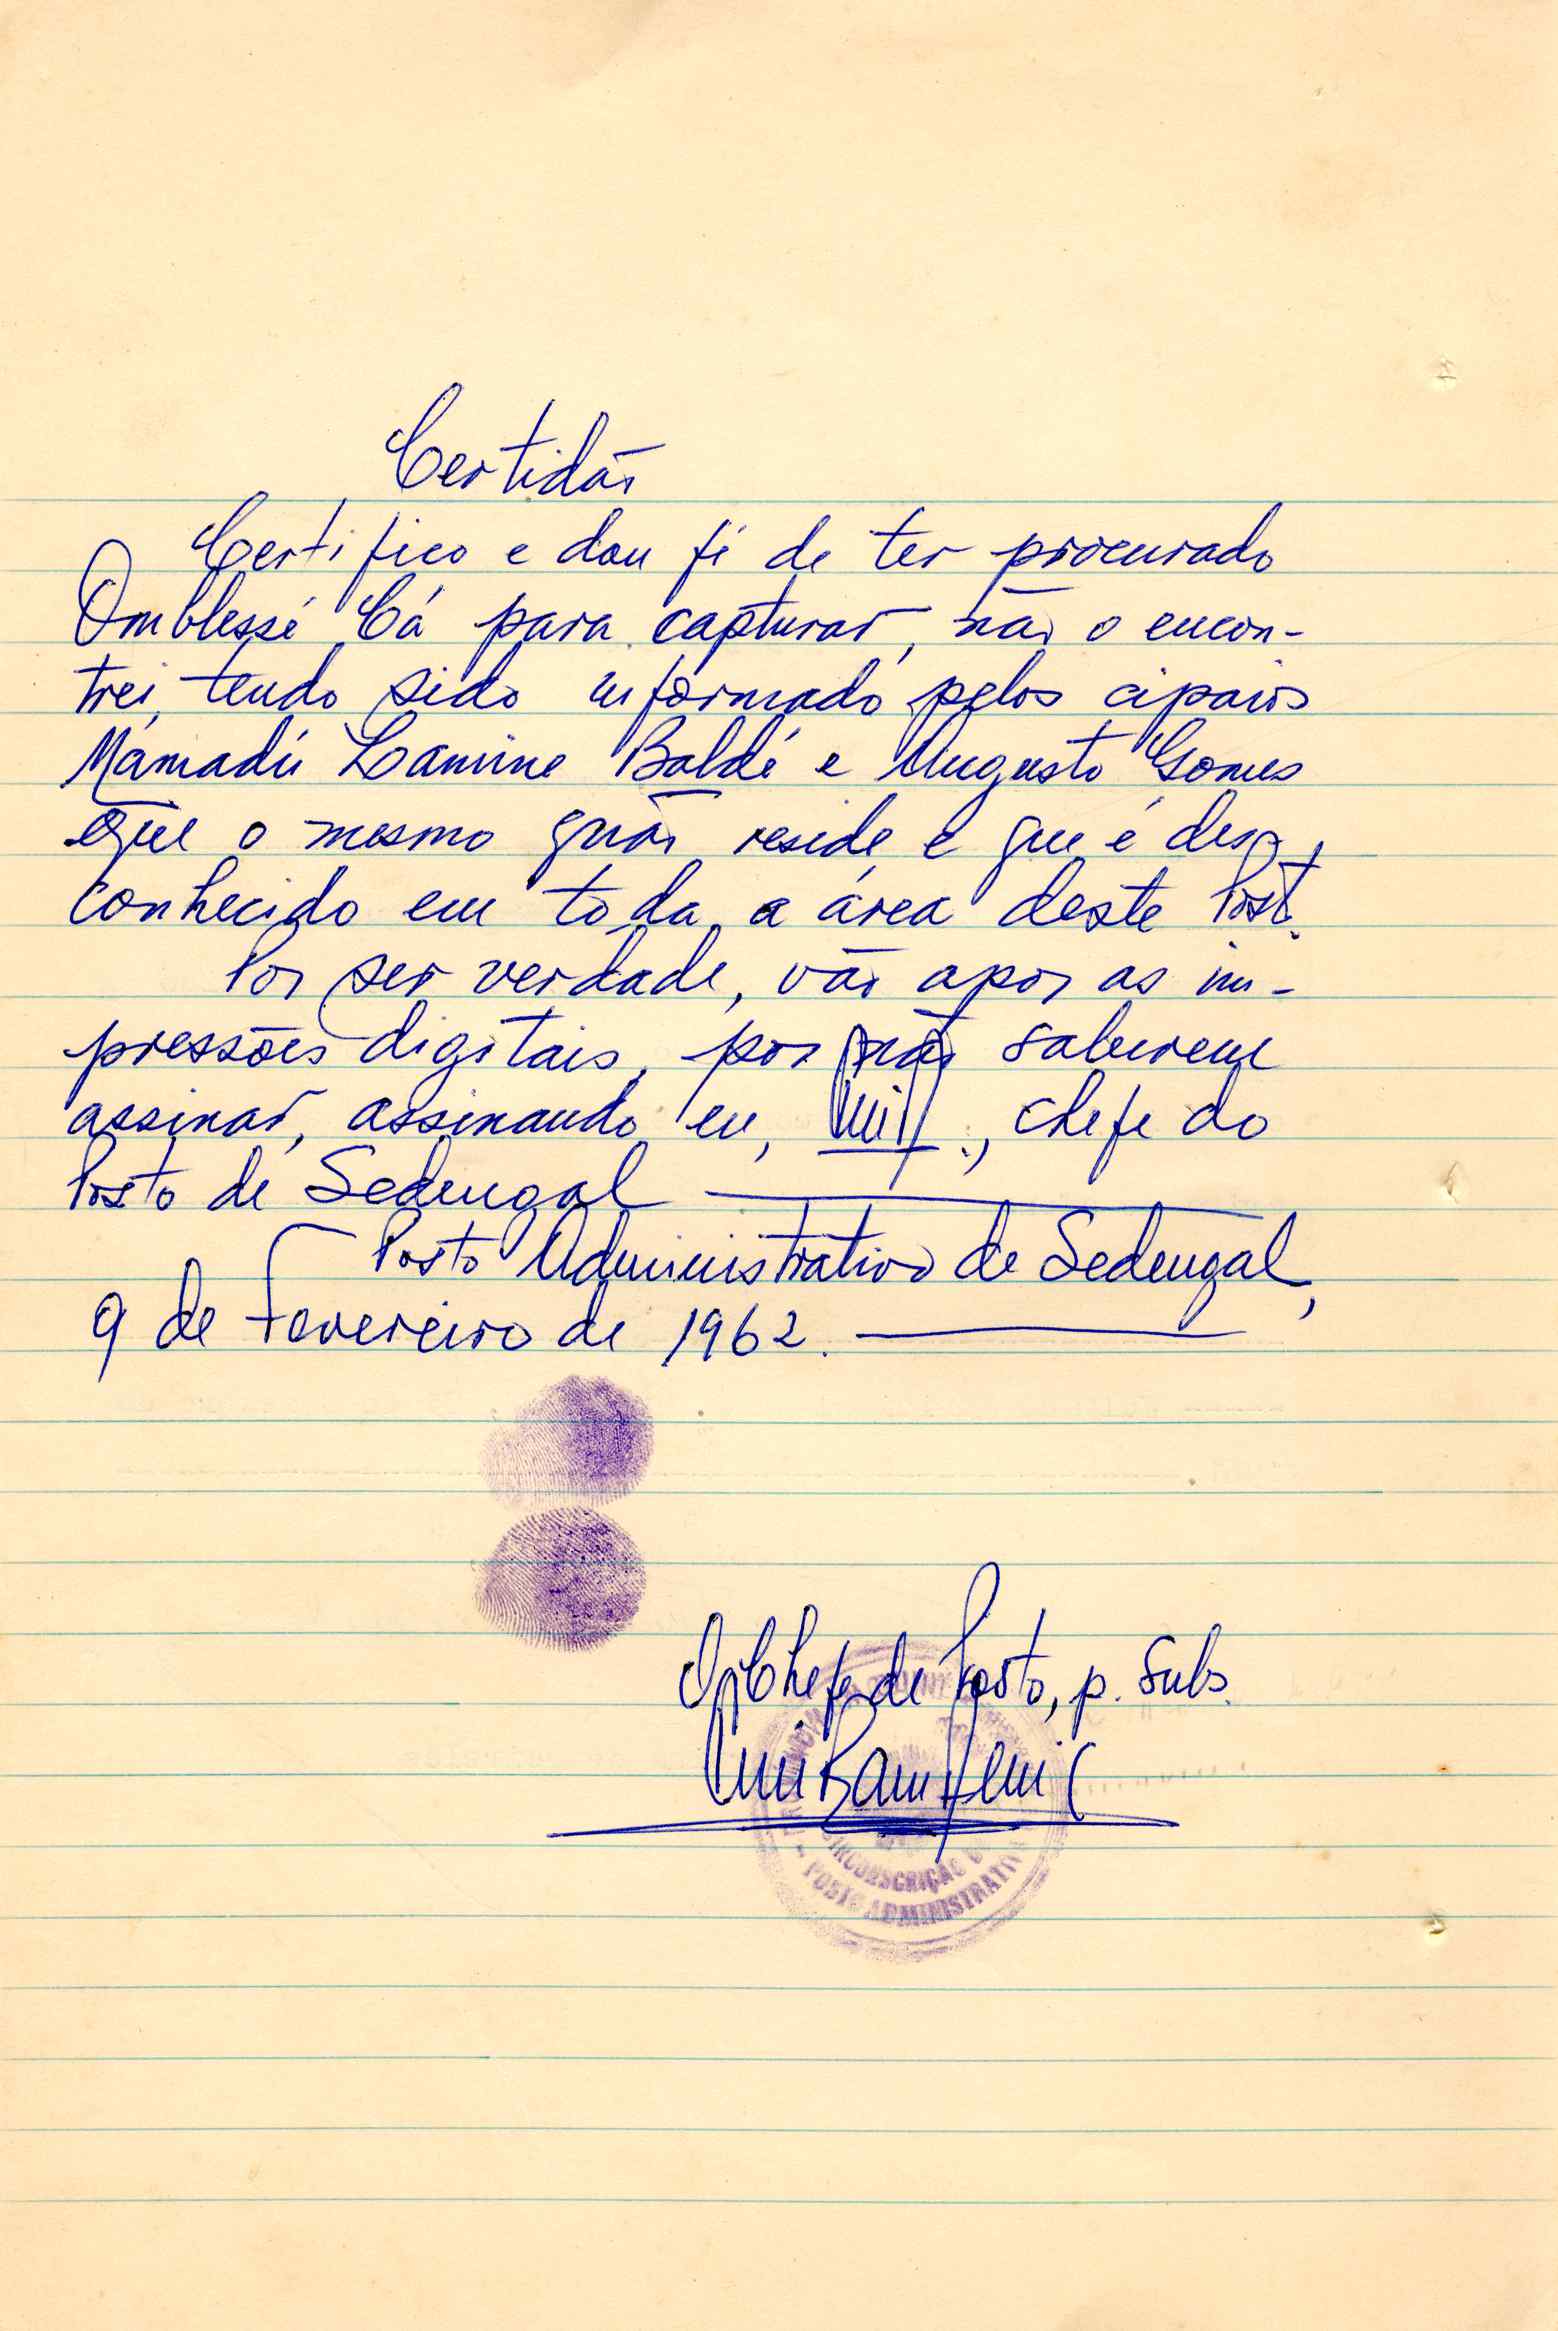 Certidão
Certifico e dou fé de ter procurado
Omblessé Cá para capturar, não o encon-
trei, tendo sido informado pelos cipaios
Mamadú Lamine Baldé e Augusto Gomes
que o mesmo não reside e que é des-
conhecido em toda a área deste Posto.
Por ser verdade, vão apor as im-
pressões digitais, por não saberem
assinar, assinando eu, chefe do
Posto de Sedengal
Posto Administrativo de Sedengal,
9 de Fevereiro de 1962.
O Chefe de Posto, p. Subs.
CIRCONSCRIÇÃO
POSTO ADMINISTRATIVO